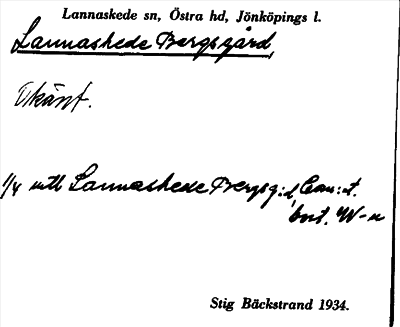 Lannaskede sn, Östra hd, Jönköpings l.
Lannaskede Bergsgård,
Okänt.
1/4 mtl Lannaskede Bergsg:d, Cau:t.
bort. W-u
Stig Bäckstrand 1934.